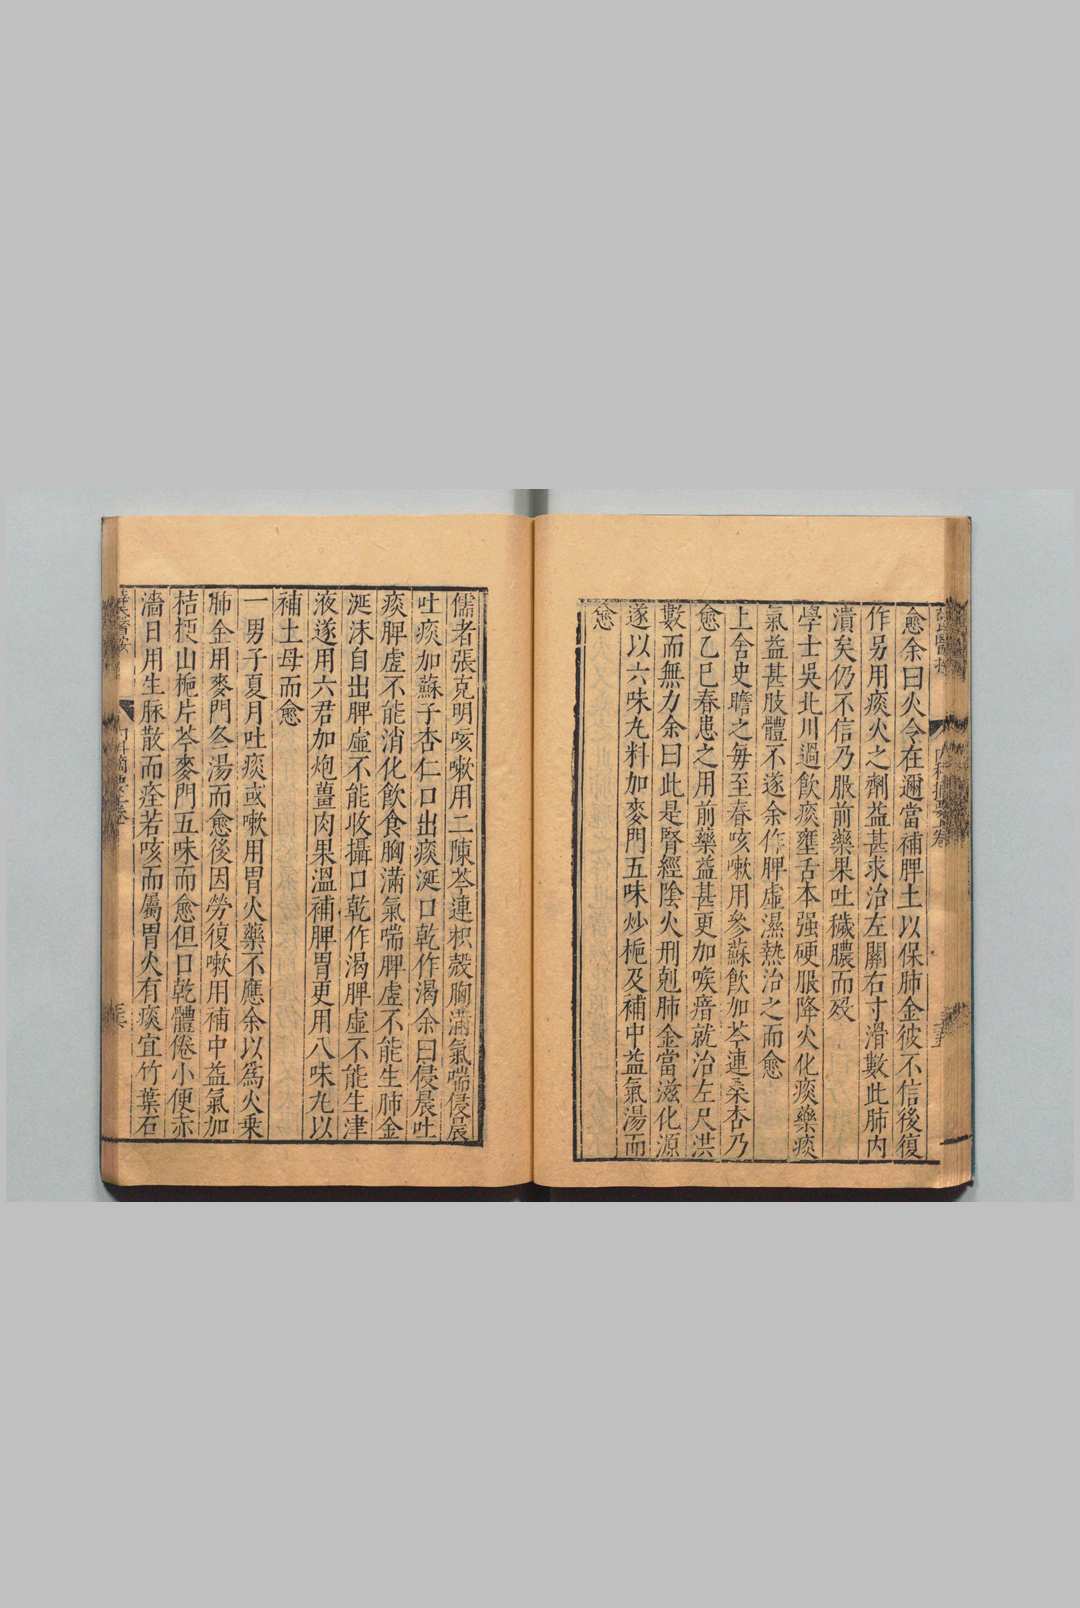 愈余曰火令在邇當補脾土以保肺金彼不信後復
作另用痰火之劑益甚求治左關右寸滑數此肺内
潰矣仍不信乃服前藥果吐穢膿而歿
學士吳北川過飲痰壅舌本强硬服降火化痰藥痰
氣益甚肢體不遂余作脾虛濕熱治之而愈
上舍史瞻之每至春咳嗽用參蘇飲加芩連桑杏乃
愈乙巳春患之用前藥益甚更加喉瘖就治左尺洪
數而無力余曰此是腎經陰火刑剋肺金當滋化源
遂以六味丸料加麥門五味炒梔及補中益氣湯而
愈
儒者張克明咳嗽用二陳芩連枳殼胸滿氣喘侵晨
吐痰加蘇子杏仁口出痰涎口乾作渴余曰侵晨吐
痰脾虛不能消化飲食胸滿氣喘脾虛不能生肺金
涎沫自出脾虛不能收攝口乾作渴脾虛不能生津
液遂用六君加炮薑肉果溫補脾胃更用八味丸以
補土母而愈
一男子夏月吐痰或嗽用胃火藥不應余以爲火乘
肺金用麥門冬湯而愈後因勞復嗽用補中益氣加
桔梗山梔片芩麥門五味而愈但口乾體倦小便赤
濇日用生脉散而痊若咳而屬胃火有痰宜竹葉石